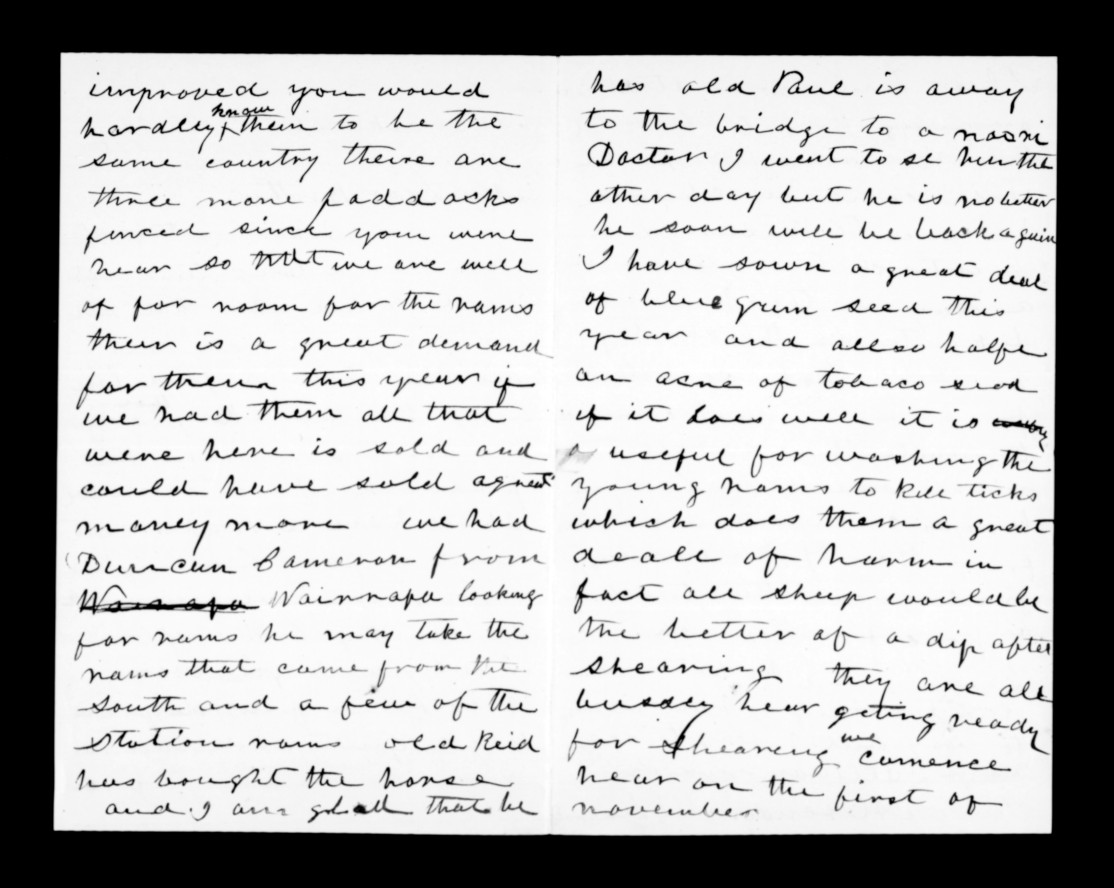 improved you would
hardley know them to be the
same country theire are
three more paddocks
fenced since your were
hear so that we are well
of for room for the rams
their is a great demand
for them this year if
we had them all that
were here is sold and
could have sold agreat
money more we had
Duncan Cameron from
Wairrapa Wairrapa looking
for rams he may take the
rams that came from the
south and a few of the
station rams old Reid
has bought the horse
and I am glad that he
has old Paul is away
to the bridge to a maori
Doctor I went to se him the
other day but he is no better
he soon will be back again
I have sown a great deal
of blue gum seed this
year and allso halfe
an acre of tobaco seed
if it does well it is
a useful for washing the
young rams to kill ticks
which does them a great
deall of harm in
fact all sheep would be
the better of a dip after
shearing they are all
bussey hear geting ready
for shearing we comence
hear on the first of
november